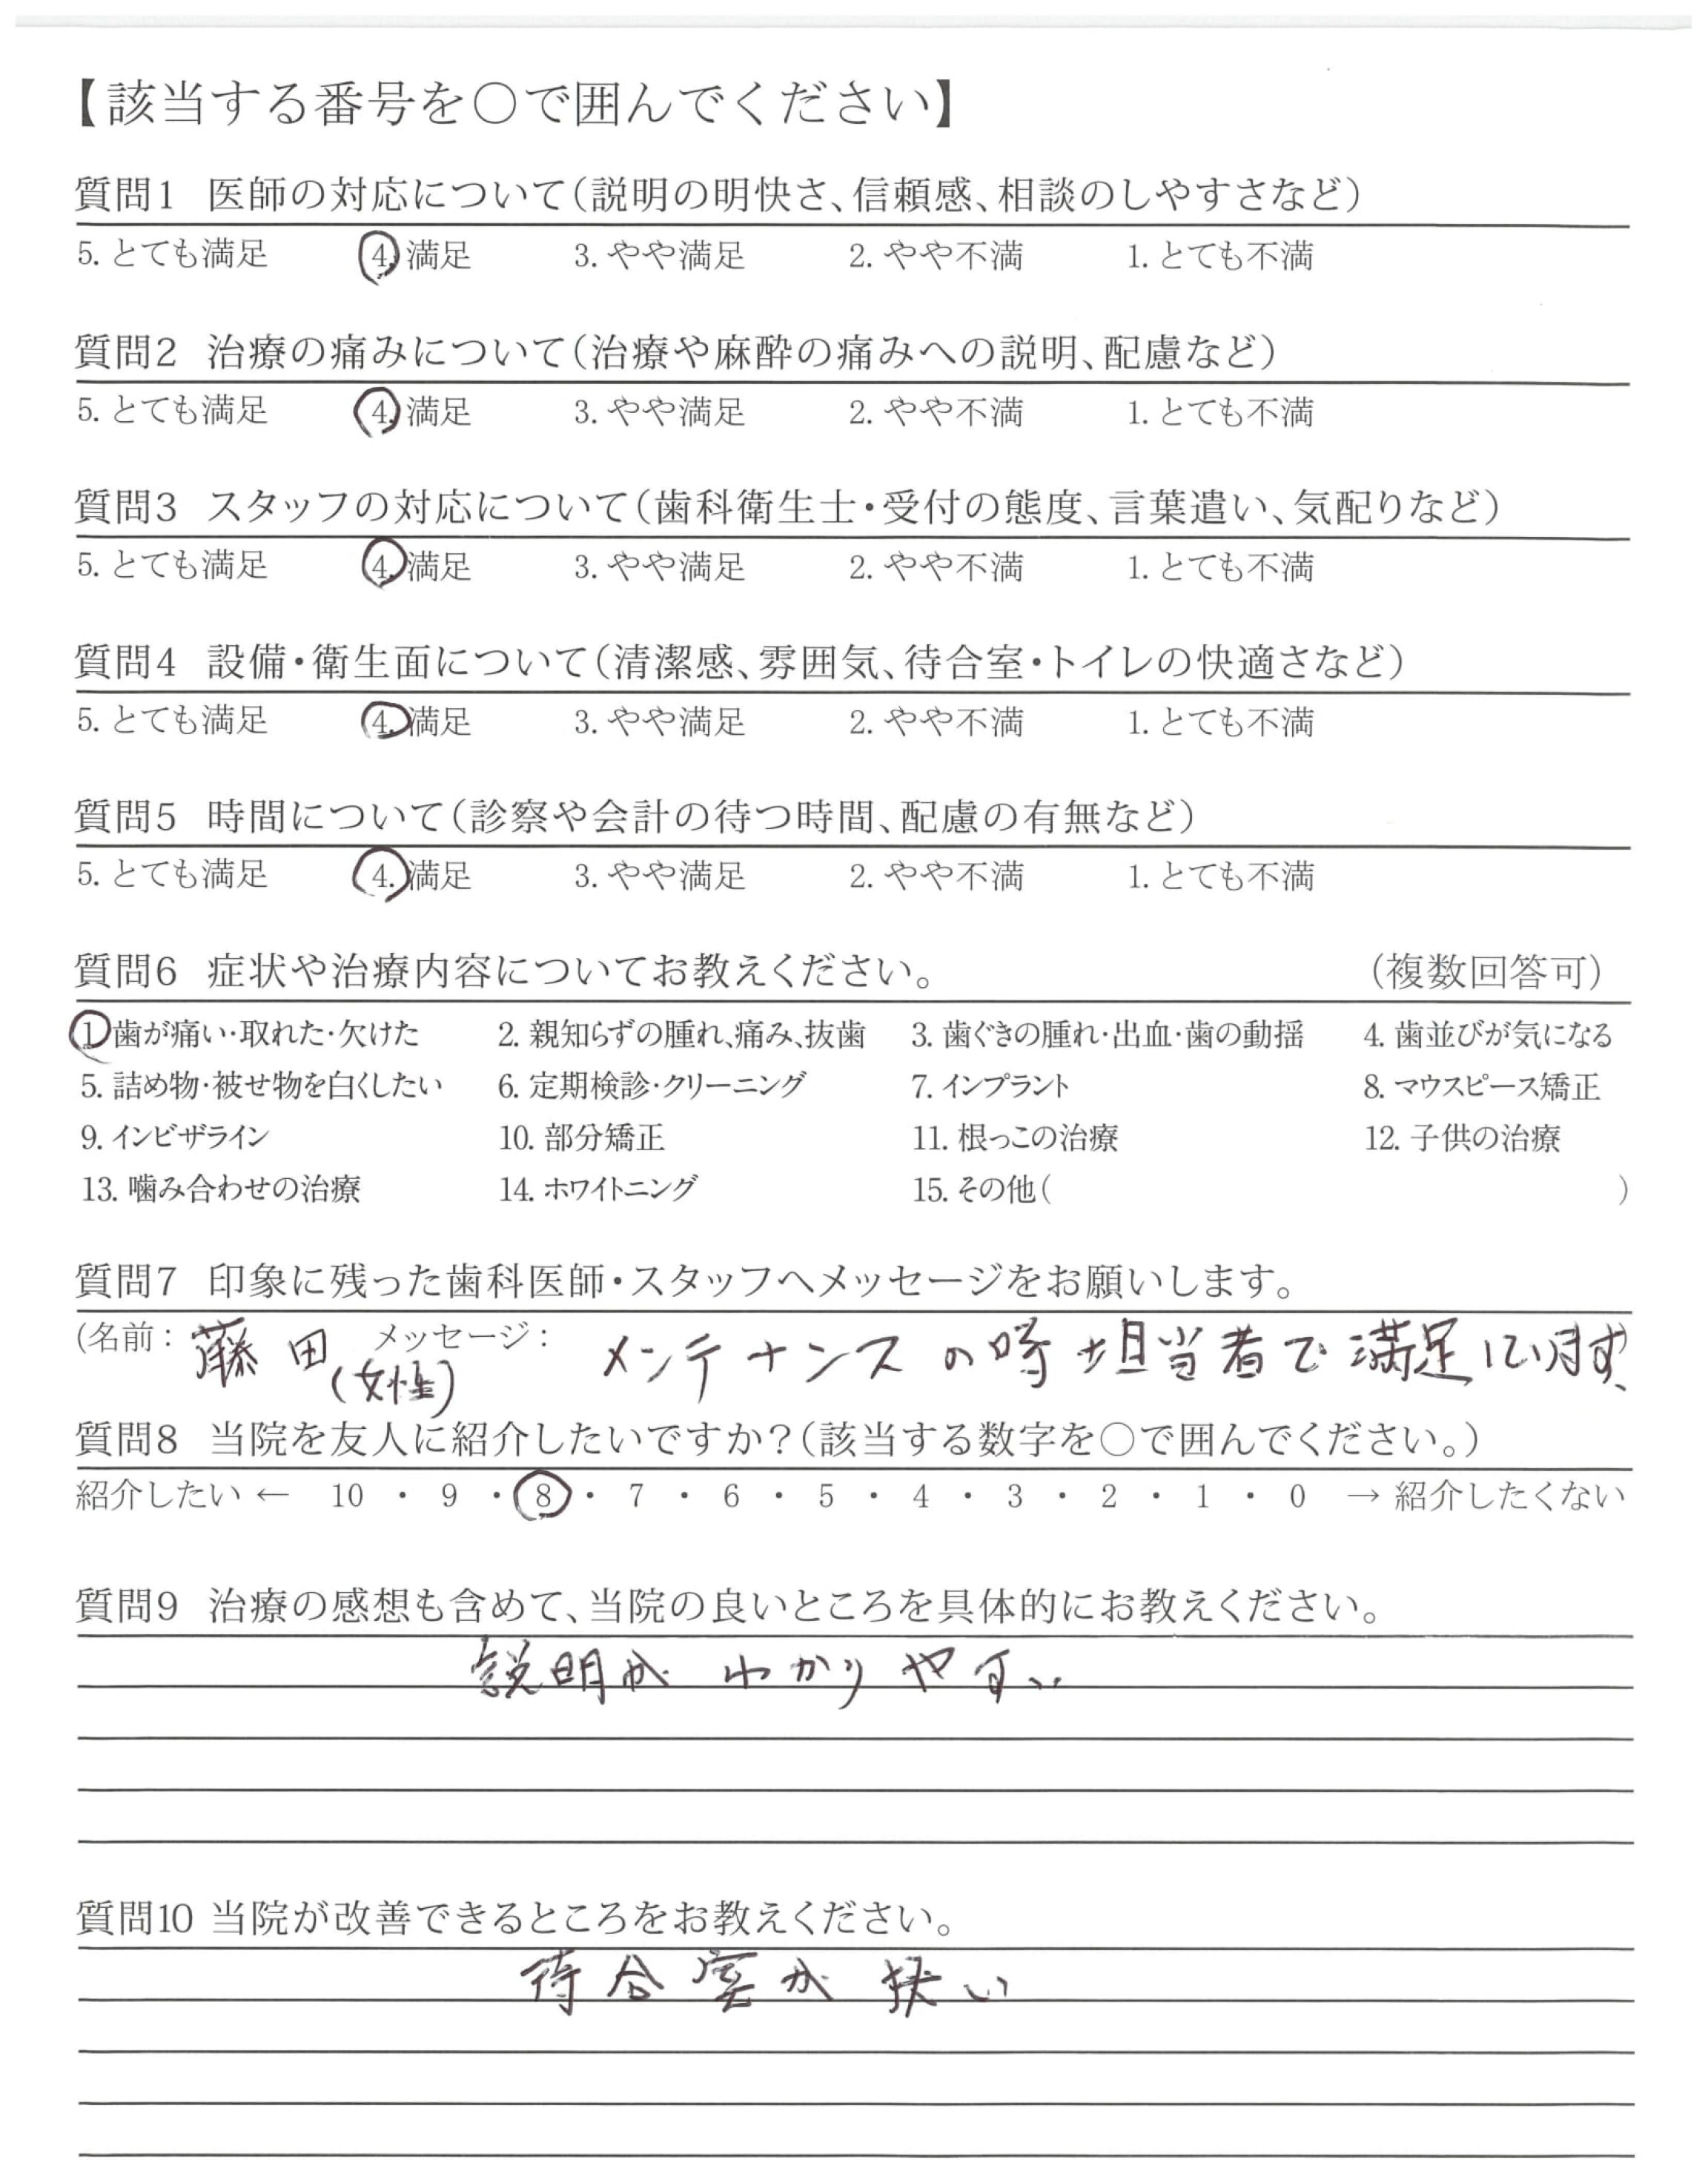 【該当する番号を○で囲んでください】
質問1 医師の対応について(説明の明快さ、信頼感、相談のしやすさなど)
5. とても満足 4. 満足 3. やや満足 2. やや不満 1. とても不満
質問2 治療の痛みについて(治療や麻酔の痛みへの説明、配慮など)
5. とても満足 4. 満足 3. やや満足 2. やや不満 1. とても不満
質問3 スタッフの対応について(歯科衛生士・受付の態度、言葉遣い、気配りなど)
5. とても満足 4. 満足 3. やや満足 2. やや不満 1. とても不満
質問4 設備・衛生面について(清潔感、雰囲気、待合室・トイレの快適さなど)
5. とても満足 4. 満足 3. やや満足 2. やや不満 1. とても不満
質問5 時間について(診察や会計の待つ時間、配慮の有無など)
5. とても満足 4. 満足 3. やや満足 2. やや不満 1. とても不満
質問6 症状や治療内容についてお教えください。 (複数回答可)
1 歯が痛い・取れた・欠けた 2. 親知らずの腫れ、痛み、抜歯 3. 歯ぐきの腫れ・出血・歯の動揺 4. 歯並びが気になる
5. 詰め物・被せ物を白くしたい 6. 定期検診・クリーニング 7. インプラント 8. マウスピース矯正
9. インビザライン 10. 部分矯正 11. 根っこの治療 12. 子供の治療
13. 噛み合わせの治療 14. ホワイトニング 15. その他( )
質問7 印象に残った歯科医師・スタッフへメッセージをお願いします。
(名前: 藤田(女性) メッセージ: メンテナンスの時担当者で満足しています
質問8 当院を友人に紹介したいですか?(該当する数字を○で囲んでください。)
紹介したい ← 10 ・ 9 ・ 8 ・ 7 ・ 6 ・ 5 ・ 4 ・ 3 ・ 2 ・ 1 ・ 0 → 紹介したくない
質問9 治療の感想も含めて、当院の良いところを具体的にお教えください。
説明が わかりやすい
質問10 当院が改善できるところをお教えください。
待合室が狭い